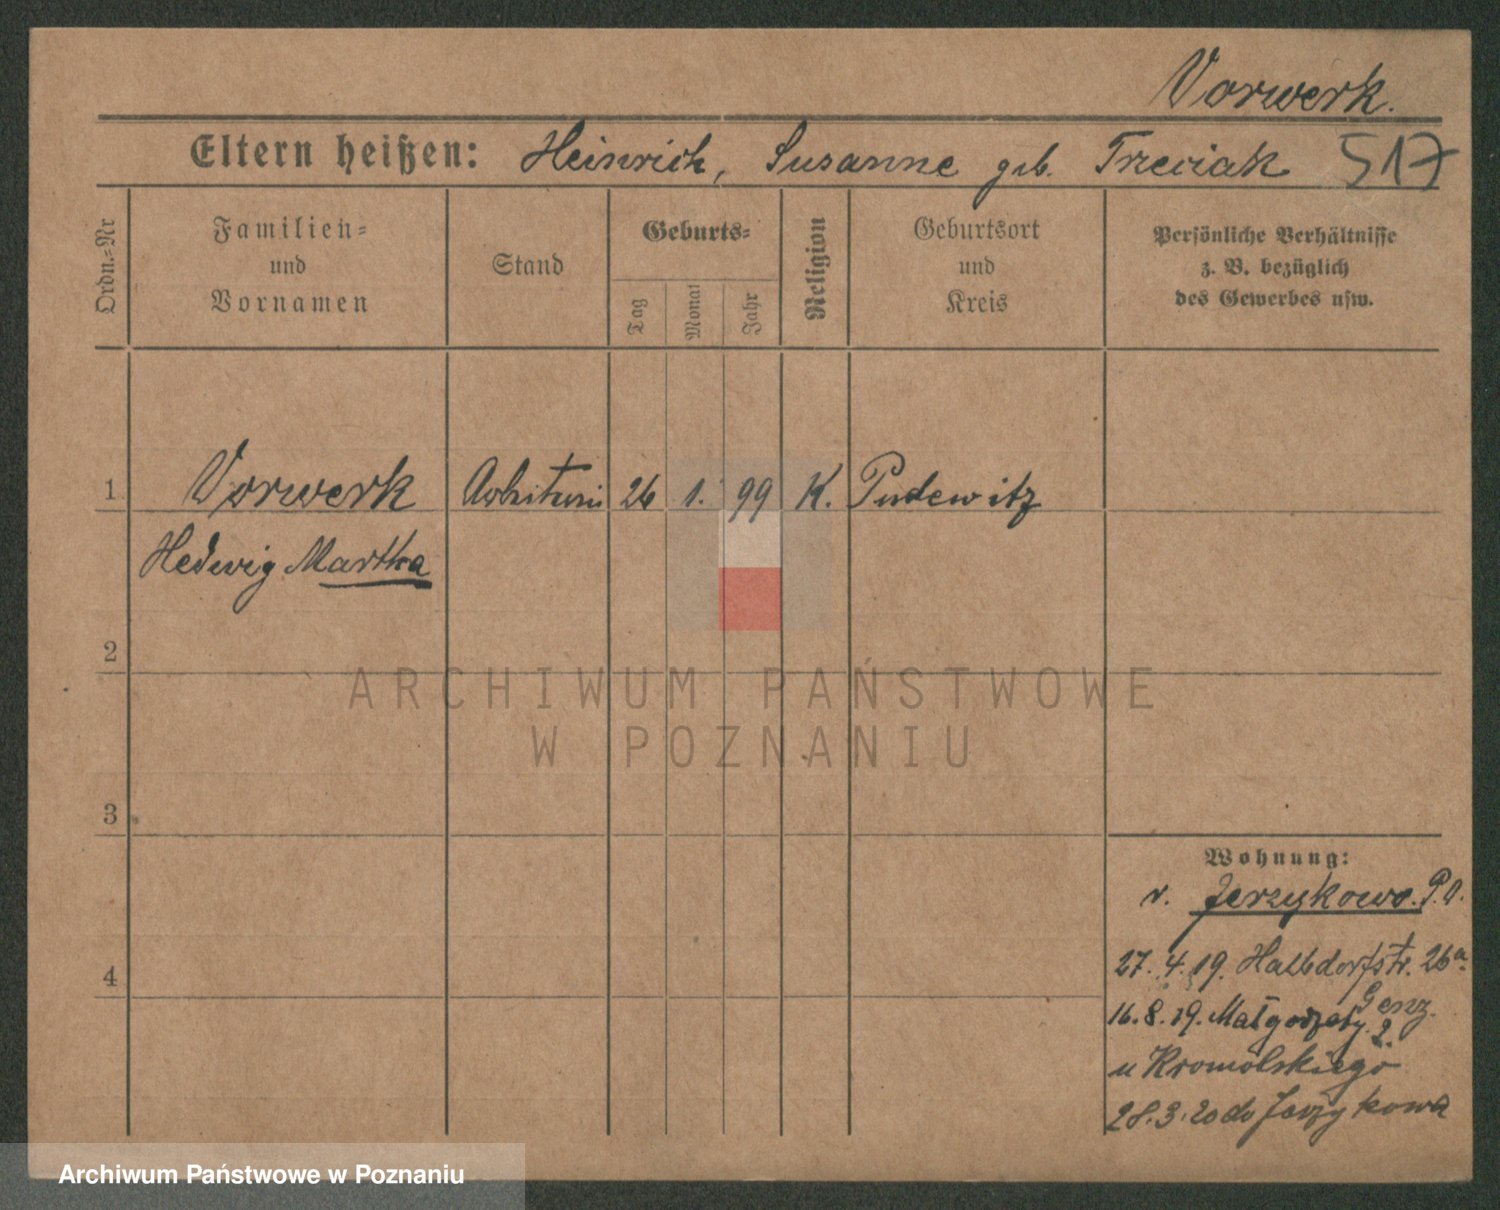 Vorwerk.
Eltern heißen: Heinrich, Susanne geb. Trzeciak 517
Ordn.-Nr
Familien-
und
Vornamen
Stand
Geburts-
Tag
Monat
Jahr
Religion
Geburtsort
und
Kreis
Persönliche Verhältnisse
z. B. bezüglich
des Gewerbes usw.
1 Vorwerk 26 1. 99 K. Pudewitz
Hedwig Martha
2
ARCHIWUM PAŃSTWOWE
W POZNANIU
3
Wohnung:
v. Jerzykowo. P.O.
4
27. 4. 19. Halbdorfstr. 26a.
16. 8. 19. Małgorzaty. 2.
u Kromolskiego
28. 3. 20 do Jerzykowa
Archiwum Państwowe w Poznaniu